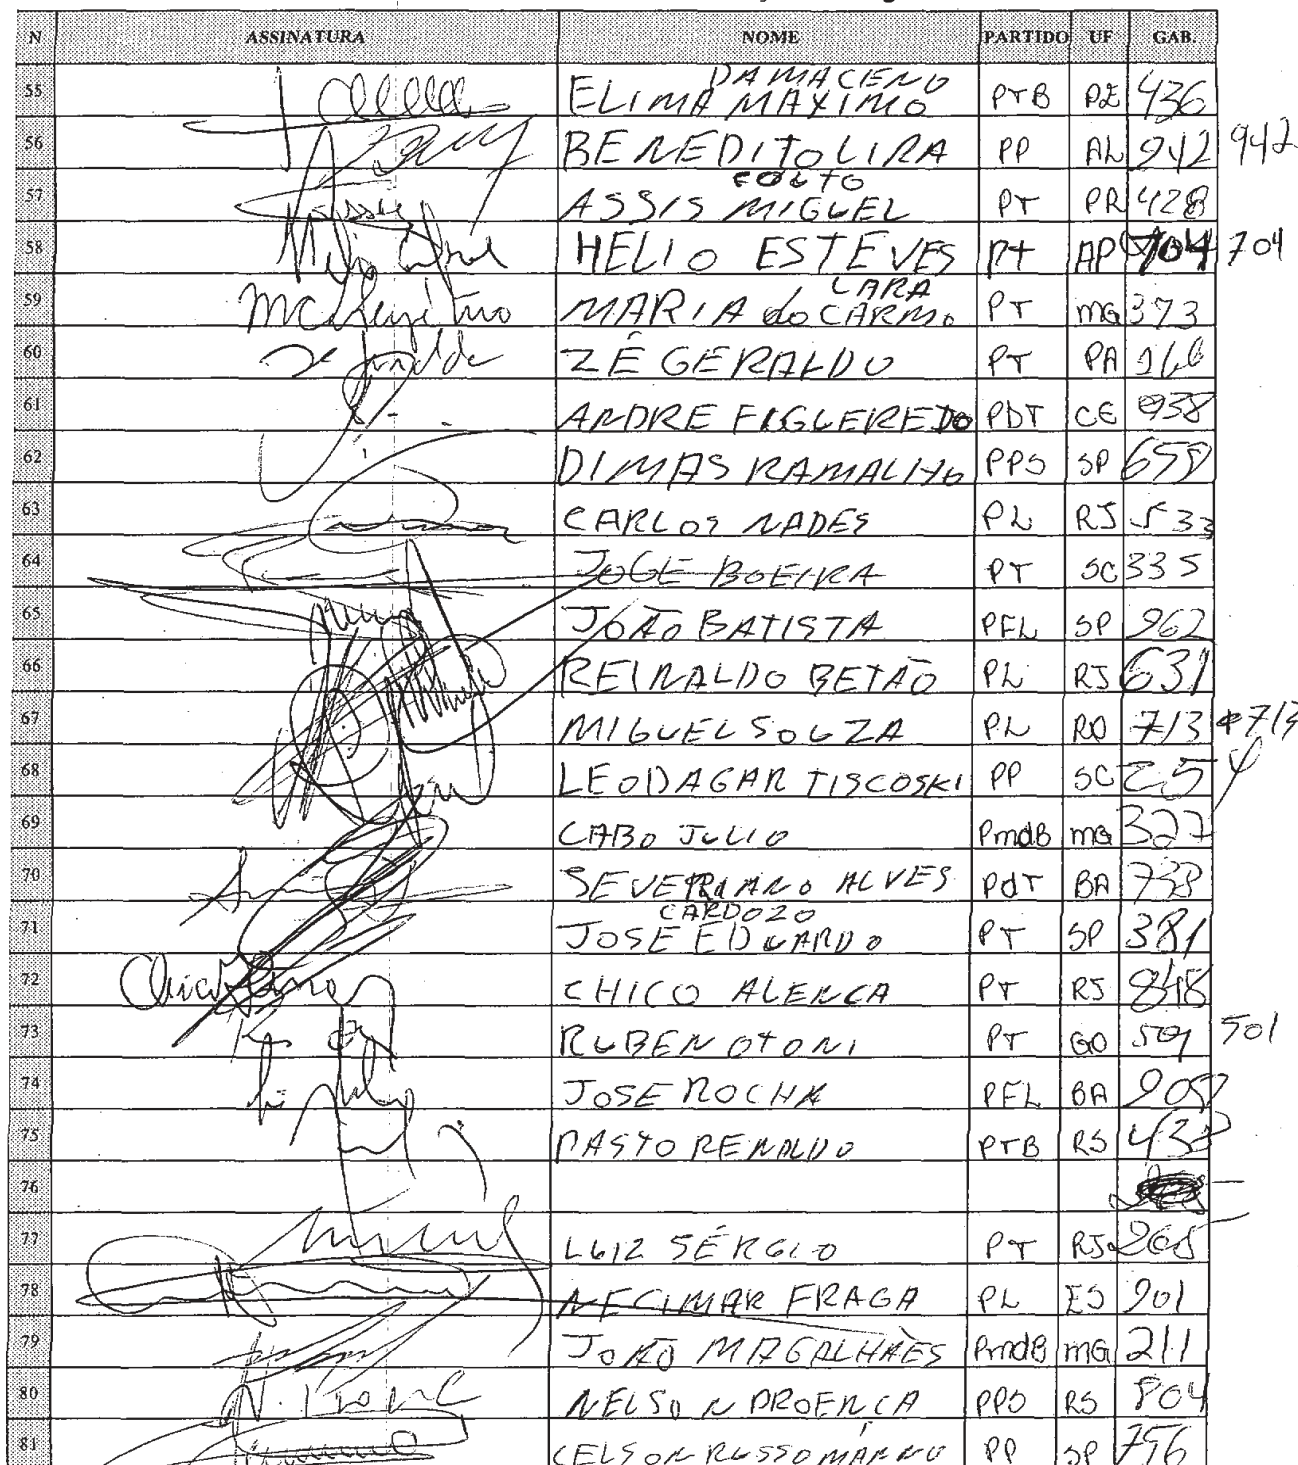 N ASSINATURA NOME PARTIDO UF GAB.
DAMACENO
55 ELIMA MAXIMO PTB PE 436
56 BENEDITO LIRA PP AL 942 942
COUTO
57 ASSIS MIGUEL PT PR 428
58 HELIO ESTEVES PT AP 704 704
LARA
59 MARIA do CARMO PT MG 373
60 ZÉ GERALDO PT PA 266
61 ANDRE FIGUEREDO PDT CE 938
62 DIMAS RAMALHO PPS SP
63 CARLOS NADES PL RJ 533
64 JOGE BOEIRA PT SC 335
65 JOÃO BATISTA PFL SP 962
66 REINALDO BETÃO PL RJ 631
67 MIGUEL SOUZA PL RO 713 713
68 LEODAGAR TISCOSKI PP SC 254
69 CABO JULIO PmdB MG 327
70 SEVERIANO ALVES PdT BA 733
CARDOZO
71 JOSE EDUARDO PT SP 381
72 CHICO ALENCA PT RJ 848
73 RUBEN OTONI PT GO 501 501
74 JOSE ROCHA PFL BA 908
75 PASTO RENALDO PTB RS 433
76
77 LUIZ SÉRGIO PT RJ 265
78 NECIMAR FRAGA PL ES 901
79 JOÃO MAGALHAES PmdB MG 211
80 NELSON PROENCA PPS RS 804
81 CELSON RUSSOMANNO PP SP 756